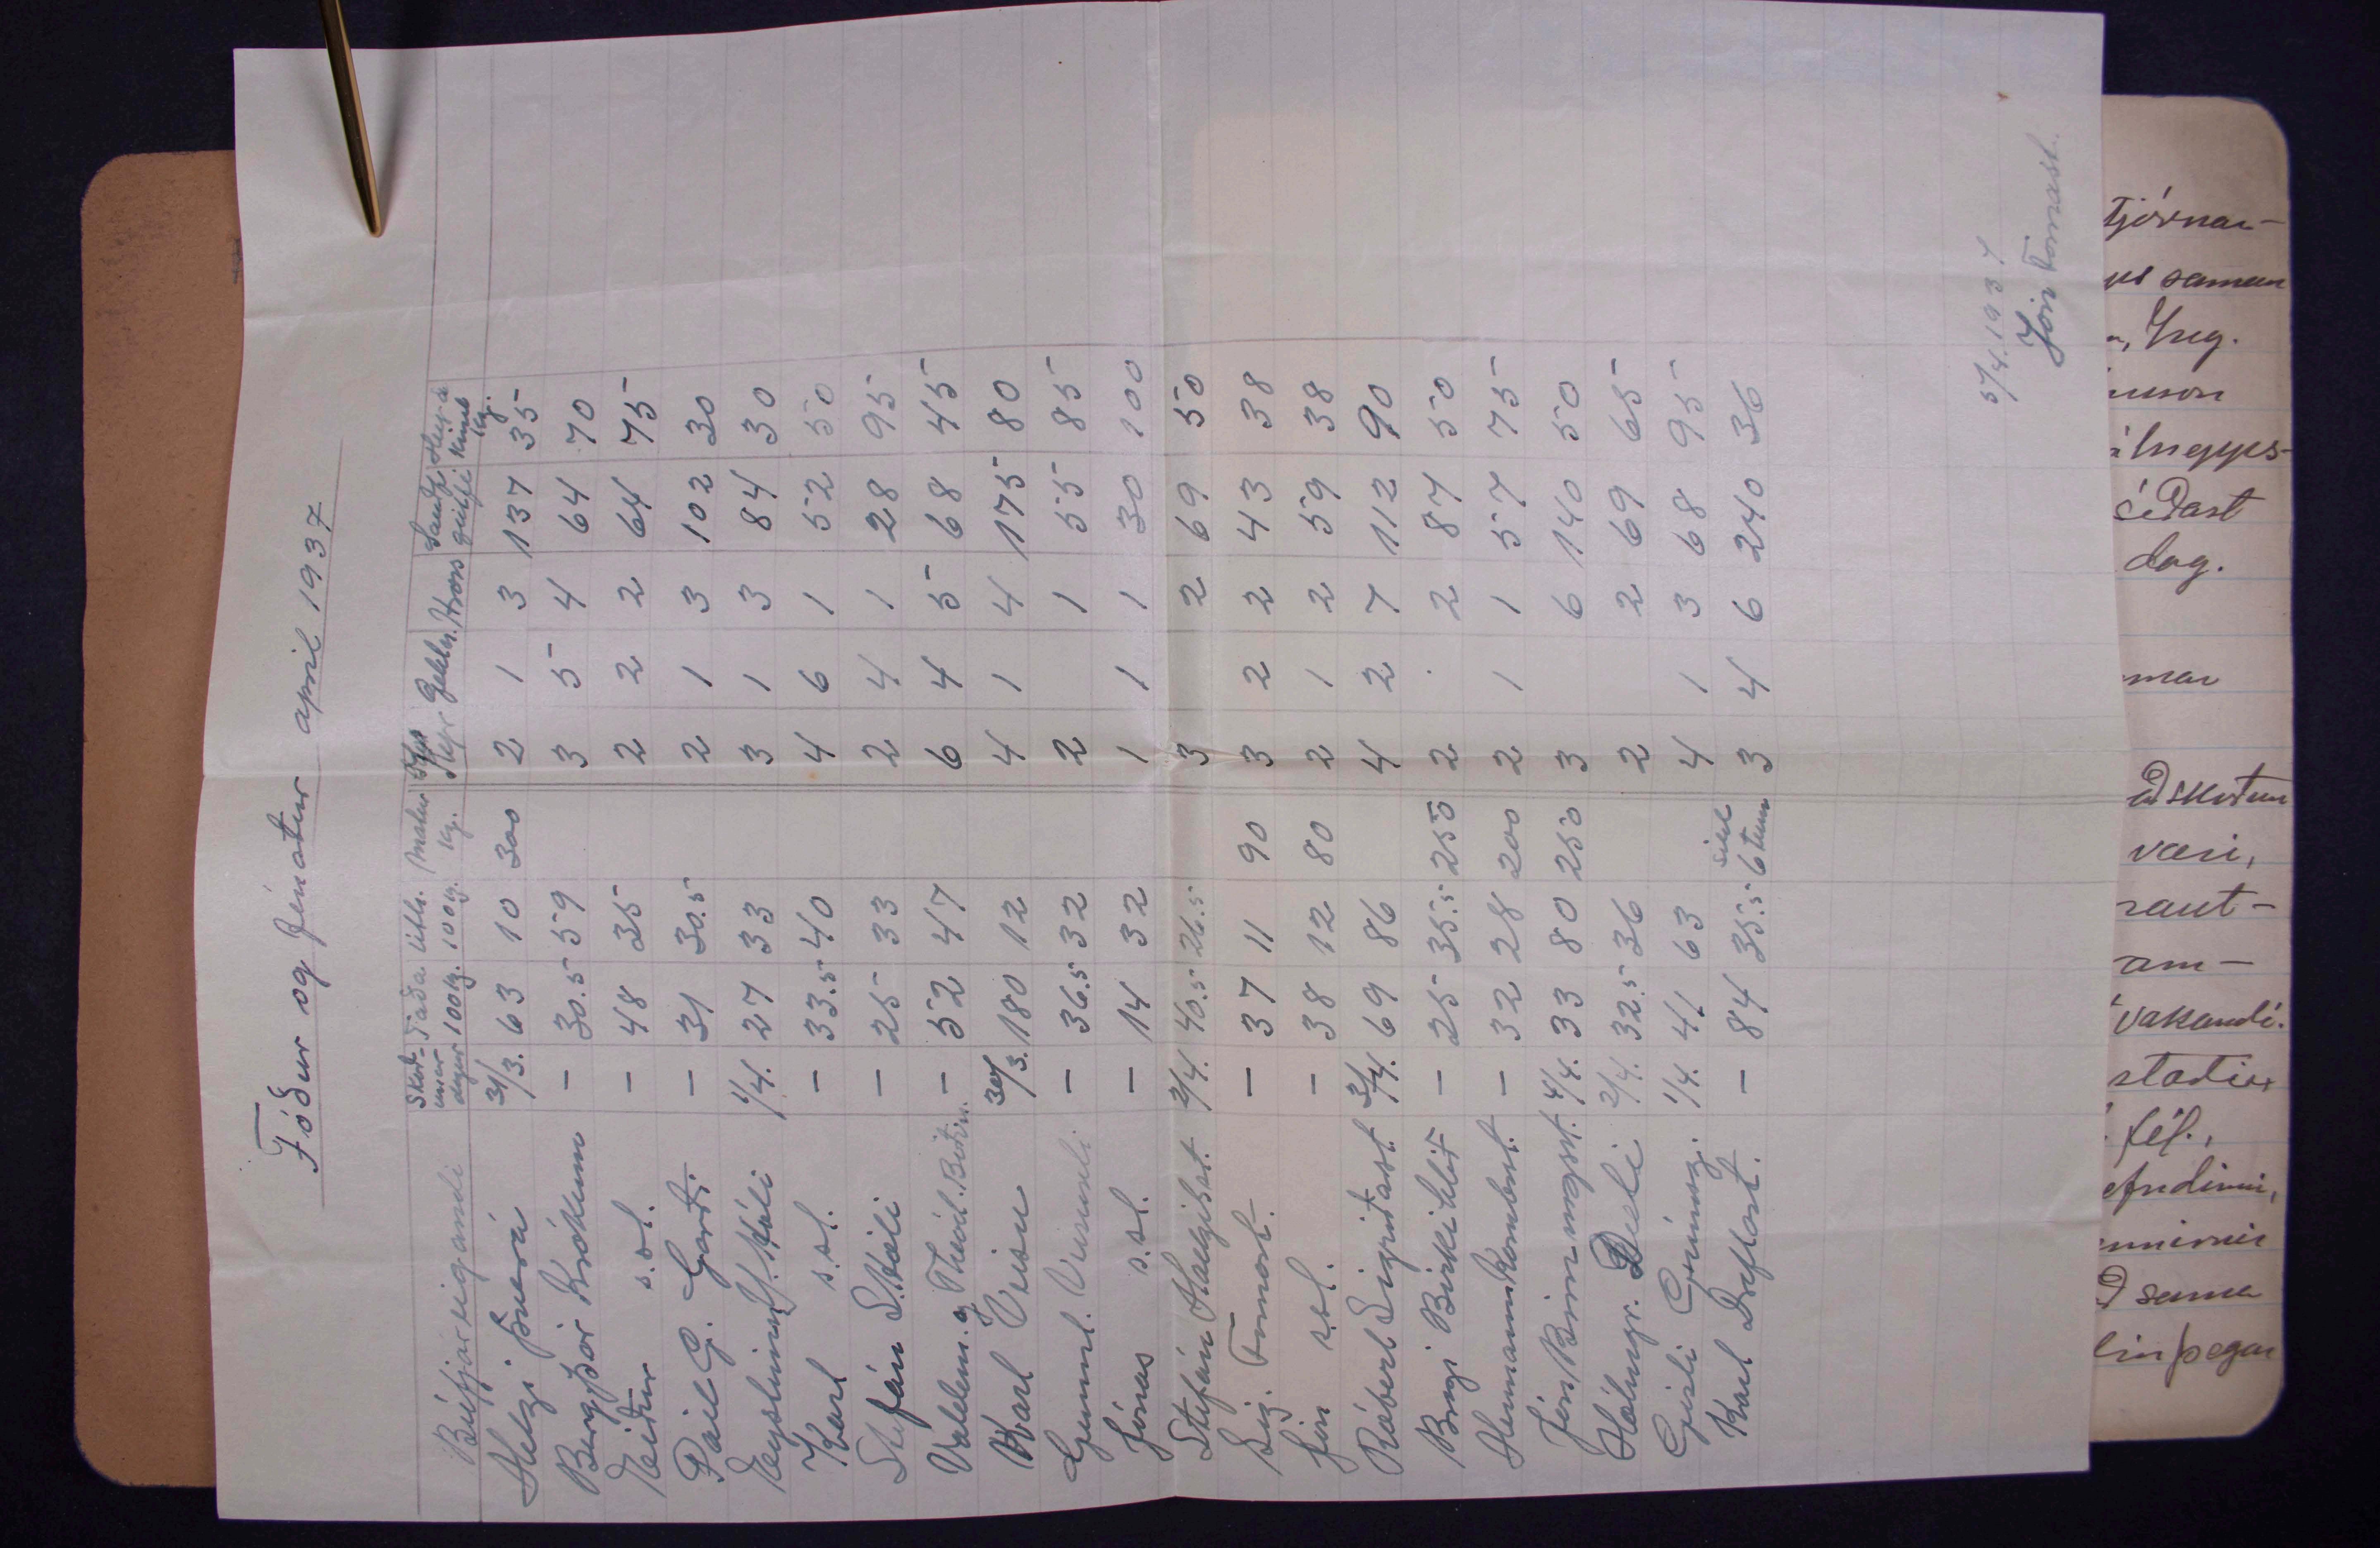 Fóður og fénaður april 1937
Búfjáreigandi Skoð-unar dagur Taða 100 kg. Úthh. 100 kg. Matur kg. Kýr Geldn. Hross Sauðf.
Helgi Þverá 31/3. 63 10 300 2 1 3 137 35
Bergþór Krókum – 30.5 59 3 5 4 64 70
Heiður s.st. – 48 35 2 2 2 64 75
Páll G. Garði – 31 30.5 2 1 3 102 30
1/4. 27 33 3 1 3 84 30
Karl s.st. – 33.5 40 4 6 1 52 50
Stefán – 25 33 2 4 1 28 95
Valdem. og – 52 47 6 4 5 68 45
Karl Veisu 30/3. 180 12 4 1 4 175 80
Gunnl. Veisuseli – 36.5 32 2 1 55 85
Jónas s.st. – 14 32 1 1 1 30 100
Stefán 2/4. 40.5 26.5 3 2 69 50
Sig. – 37 11 90 3 2 2 43 38
Jón s.st. – 38 12 80 2 1 2 59 38
Róbert Sigríðast. 3/4. 69 86 4 2 7 112 90
Bragi Birkihlíð – 25 35.5 250 2 . 2 87 50
Hermann Kambst. – 32 28 200 2 1 1 57 75
Jón Birningsst. 4/4. 33 80 250 3 6 140 50
Hólmgr. 2/4. 32.5 36 2 2 69 65
Gísli Grímsg. 1/4. 41 63 4 1 3 68 95
Karl Draflast. – 84 35.5 síld 6 tunn 3 4 6 240 36
5/4. 1937
Jón Tómass.
saman
Ing.
dag.
væri,
vakandi.
fél.,
sama
þegar